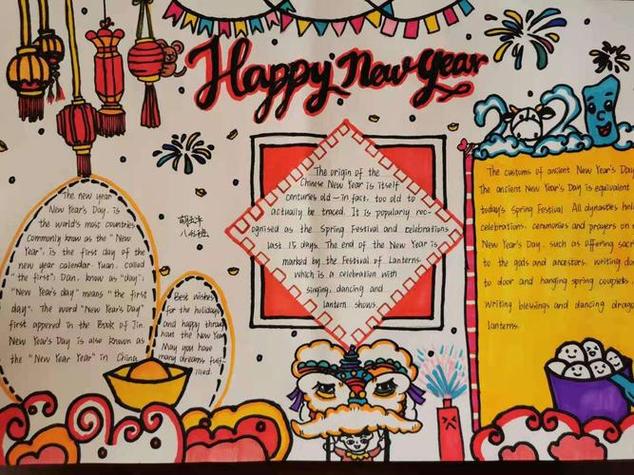 Happy New Year
2021
The new year
New Year's Day, is
the world's most countries
commonly know as the "New
Year", is the first day of the
new year calendar Yuan, called
"the first"; Dan, know as "day";
"New Year's day" means "the first
day". The word "New Year's Day"
first appered in the Book of Jin
New Year's Day is also known as
the "New Year Year" in China
Best wishes
for the holidays
and happy throug
hout the New Year
May you have
many dreams fulf
illed.
八
班
The origin of the
Chinese New Year is itself
centuries old - in fact, too old to
actually be traced. It is popularly rec-
ognised as the Spring Festival and celebrations
last 15 days. The end of the New Year is
marked by the Festival of Lanterns
which is a celebration with
singing, dancing and
lantern shows.
The customs of ancient New Year's Day
The ancient New Year's Day is equivalent
today's Spring Festival. All dynasties hel
celebrations, ceremonies and prayers on
New Year's Day, such as offering sacr
to the gods and ancestors, writing do
to door and hanging spring couplets
writing blessings and dancing drag
lanterns.